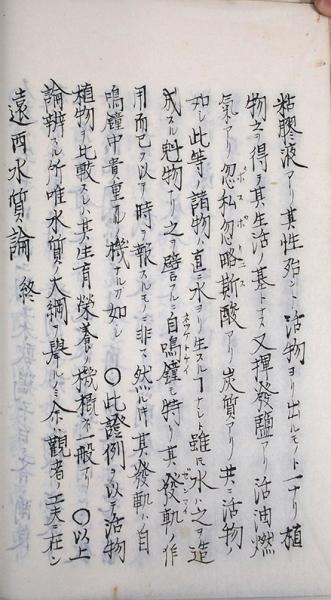 粘膠液アリ其性殆ント活物ヨリ出ルモノト一ナリ植
物之ヲ得テ其生活ノ基トナス又揮發鹽アリ活油燃
氣アリ忽私忽略斯酸アリ炭質アリ共ニ活物ノ
如シ此等ノ諸物ハ直ニ水ヨリ生スルヿナシト雖𪜈水ハ之ヲ造
成スル魁物ナリ之ヲ譬ルニ自鳴鐘ヲ特ニ其發軌ノ作
用而已ヲ以テ時ヲ報スルモノニ非ス然レ𪜈其發軌ハ自
鳴鐘中貴重ノ機ナルカ如シ〇此證例ヲ以テ活物
植物ヲ比較スレハ其生育榮養ノ機樞一般ナリ〇以上
論辨スル所唯水質ノ大綱ヲ擧ルノミ余ハ觀者ノ工夫在ン
遠西水質論 終